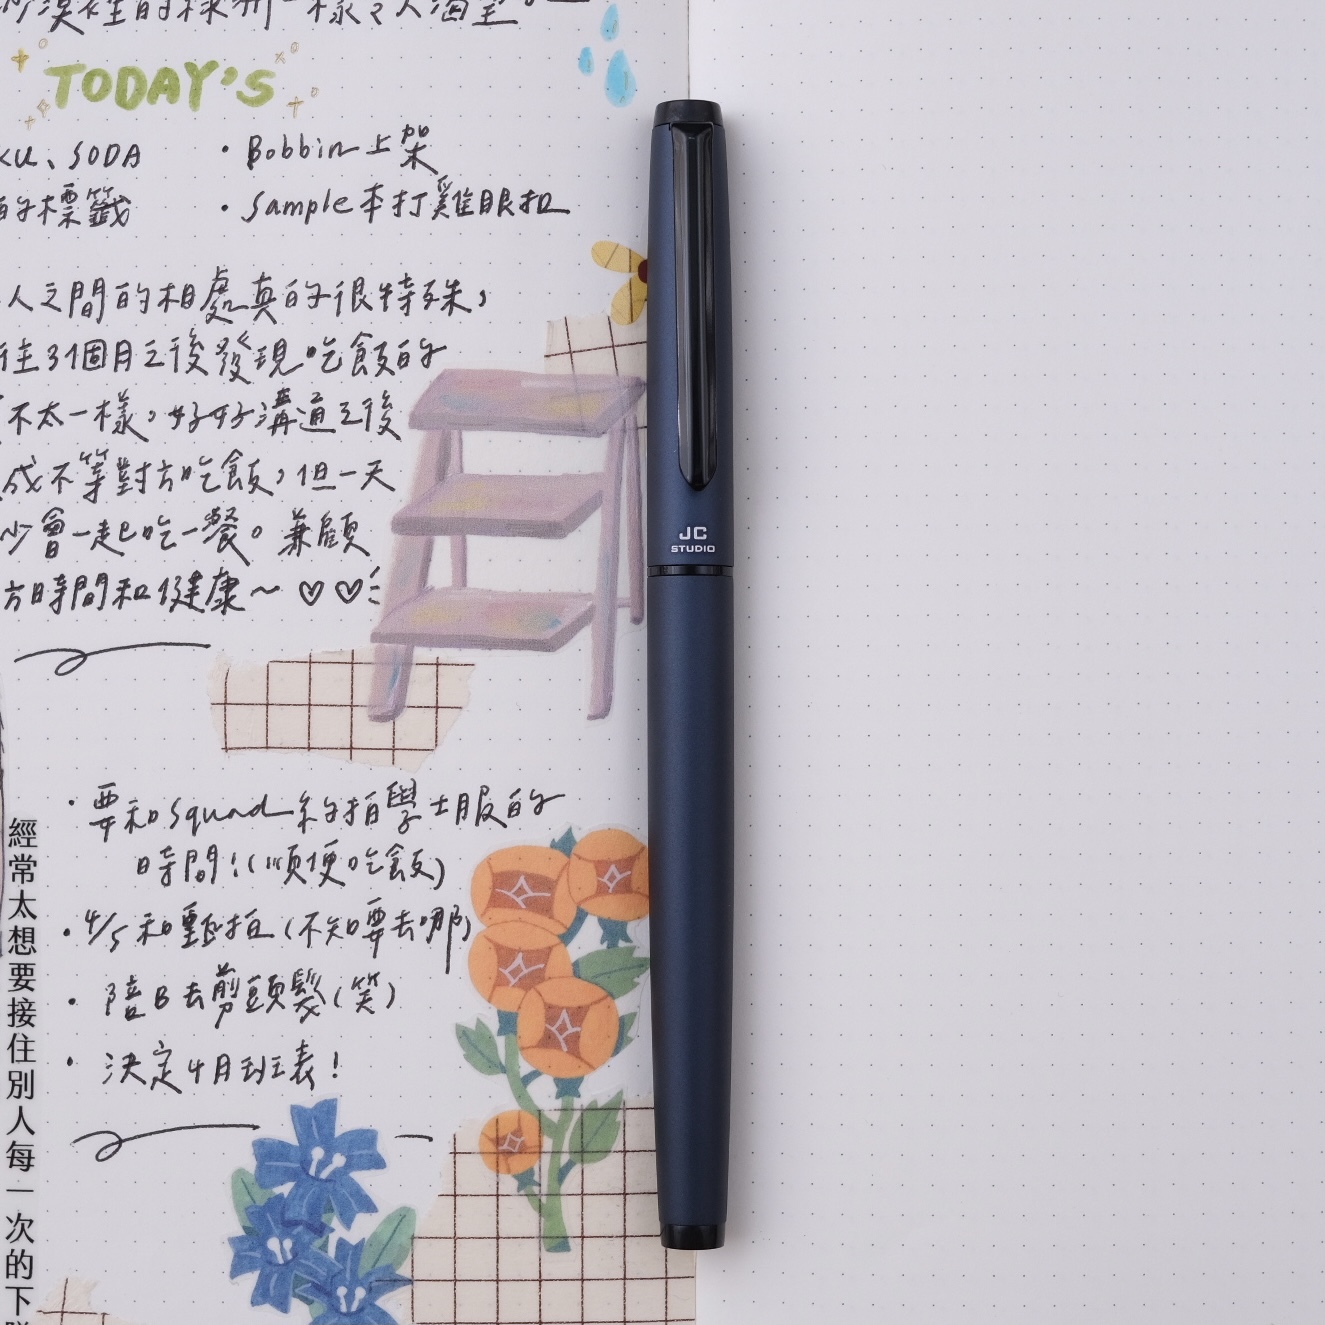 TODAY'S
KU、SODA
・Bobbin上架
的標籤
・Sample本打雞眼扣
人之間的相處真的很特殊，
往3個月之後發現吃飯的
不太一樣，好好溝通之後
成不等對方吃飯，但一天
少會一起吃一餐。兼顧
方時間和健康～♡♡
・要和Squad約拍學士服的
時間！（順便吃飯）
・4/5和甄拍（不知要去哪）
・陪B去剪頭髮（笑）
・決定4月班表！
經常太想要接住別人每一次的下
JC
STUDIO